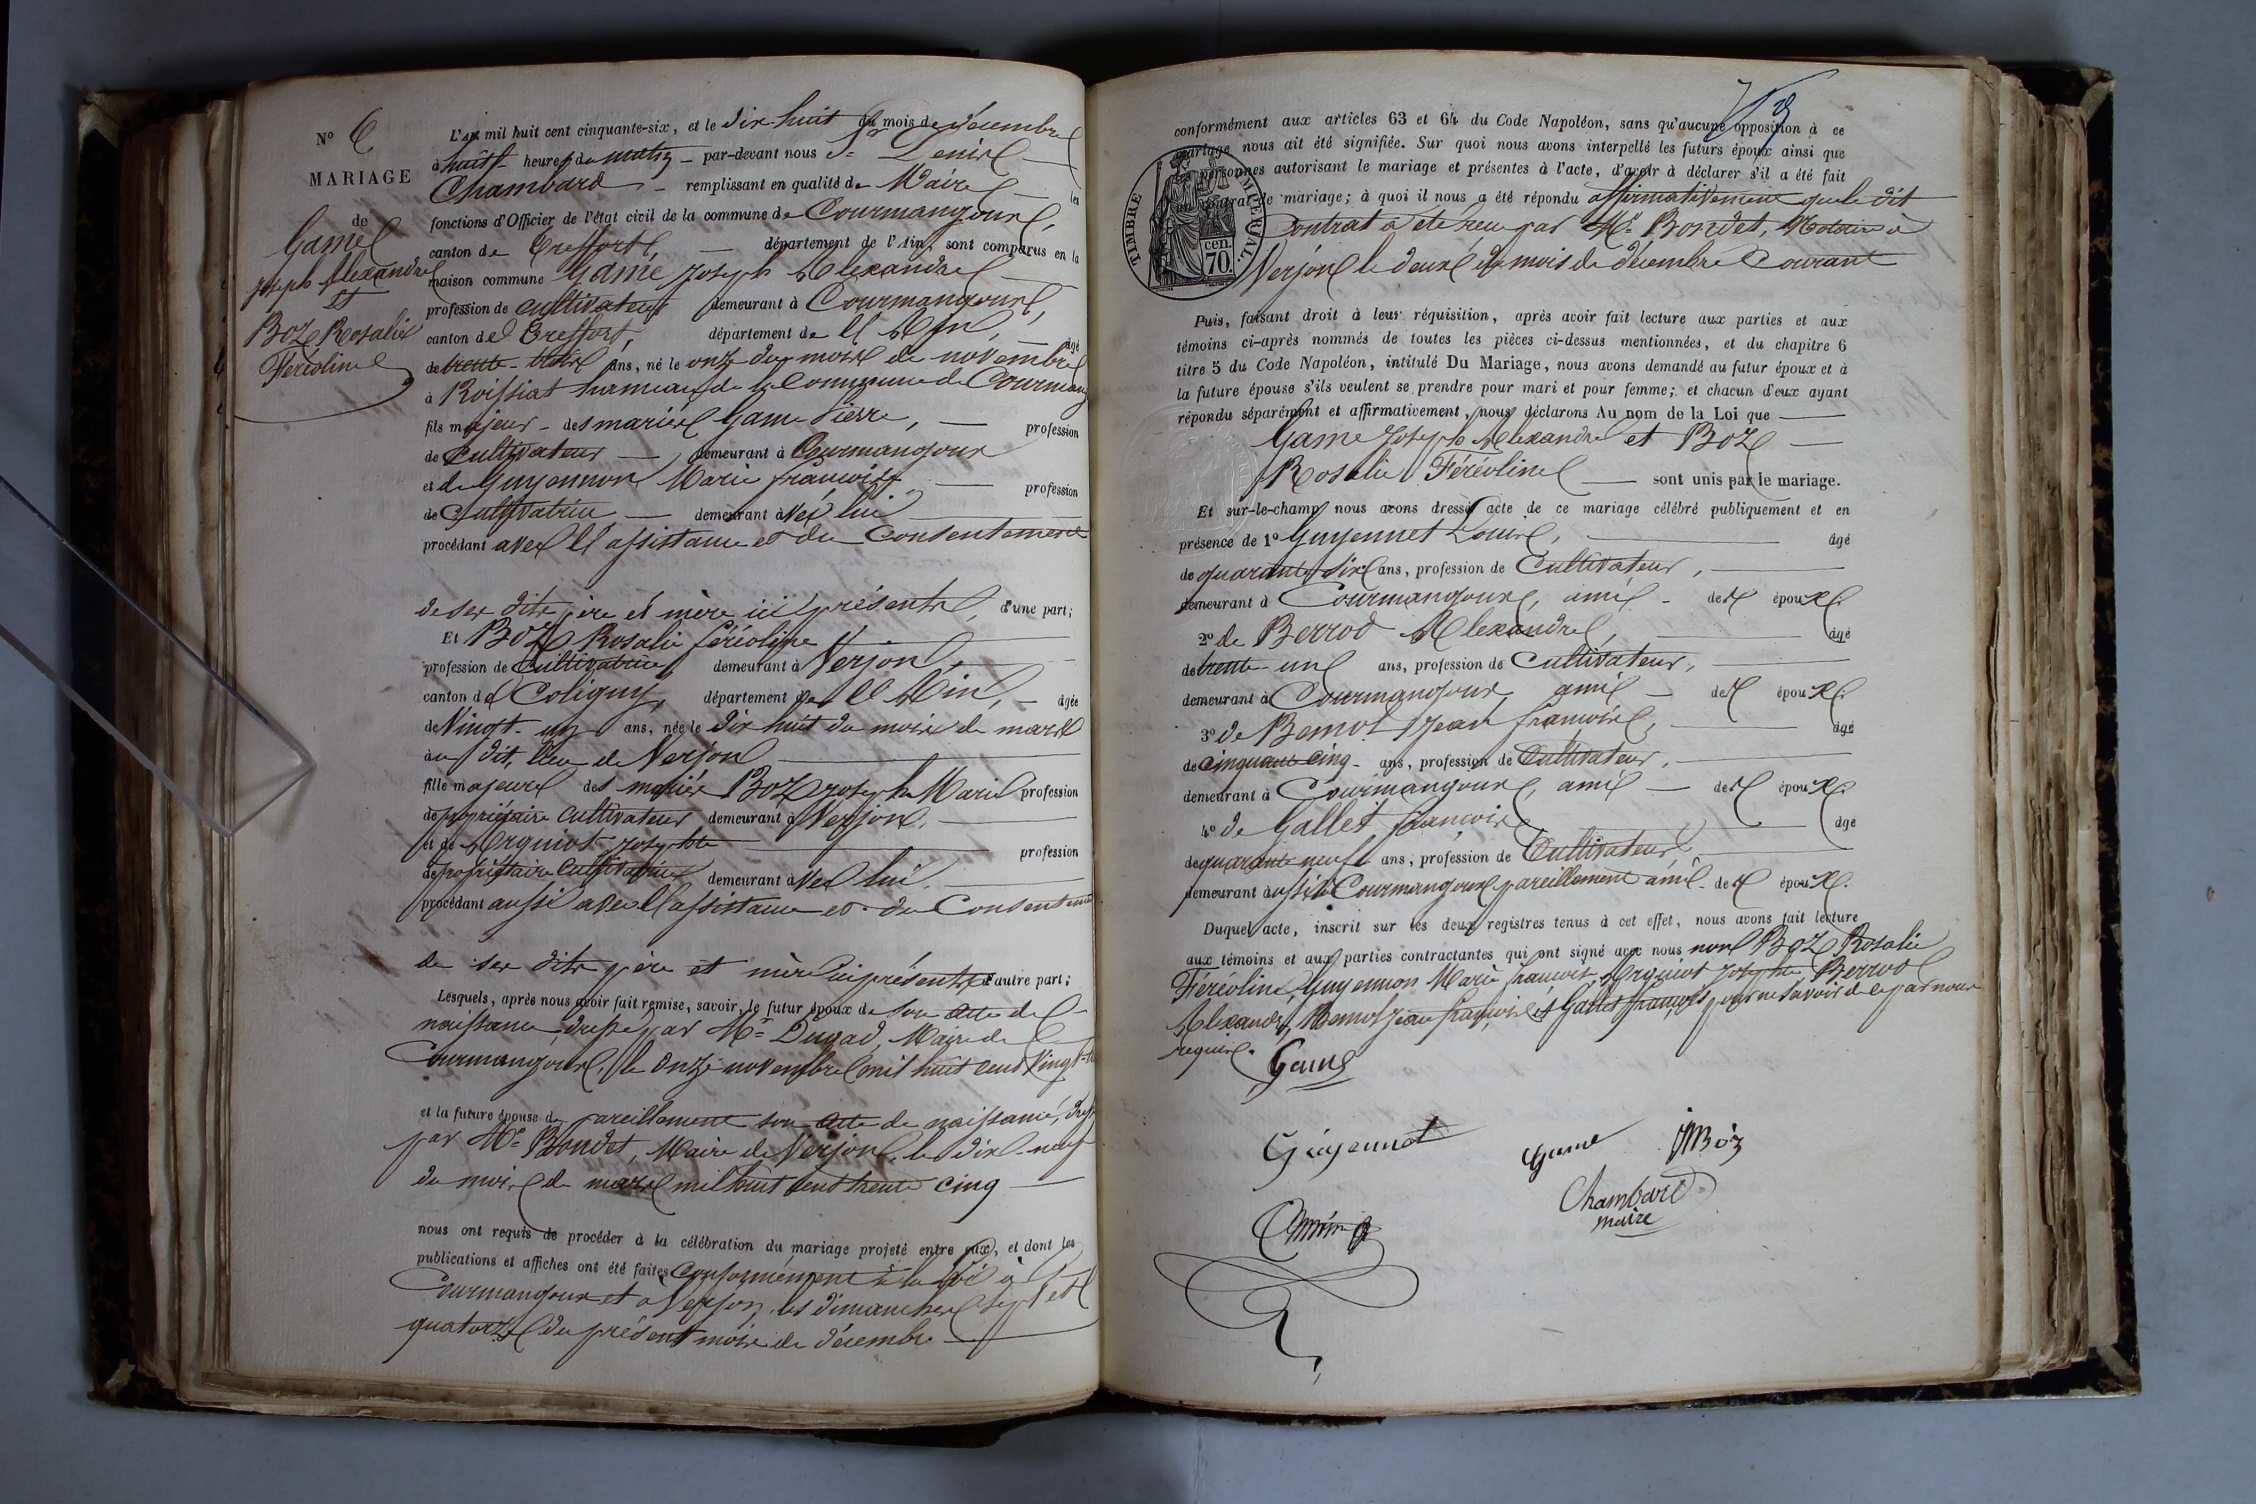 N° 6
MARIAGE
de
Game
Joseph Alexandre
Et
Boz Rosalie
Féréoline
L'an mil huit cent cinquante-six, et le dix-huit du mois de décembre
à huit heures du matin par-devant nous Sr Denis
Chambard remplissant en qualité de Maire les
fonctions d'Officier de l'état civil de la commune de Courmangoux,
canton de Treffort, département de l'Ain, sont comparus en la
maison commune Game Joseph Alexandre
profession de cultivateur demeurant à Courmangoux,
canton de Treffort, département de l'Ain, âgé
de trente-trois ans, né le onze du mois de novembre
à Roissiat hameau de la Commune de Courmang
fils majeur des mariés Game Pierre, profession
de Cultivateur demeurant à Courmangoux
et de Guyennon Marie françoise profession
de Cultivatrice demeurant avec lui
procédant avec l'assistance et du Consentement
de ses dits père et mère ici présents, d'une part;
Et Boz Rosalie féréoline
profession de Cultivatrice demeurant à Verjon,
canton de Coligny, département de l'Ain, âgée
de Vingt-un ans, née le dix huit du mois de mars
au dit lieu de Verjon
fille majeure des mariés Boz Joseph Marie profession
de propriétaire Cultivateur demeurant à Verjon,
et de Arquiot Josephte profession
de propriétaire Cultivatrice demeurant avec lui.
procédant aussi avec l'assistance et du Consentement
de ses dits père et mère ici présents d'autre part;
Lesquels, après nous avoir fait remise, savoir, le futur époux de son acte de
naissance, dressé par Mr Dugad, Maire de
Courmangoux, le onze novembre mil huit cent vingt-
et la future épouse de pareillement son acte de naissance,
par Mr Bondet, Maire de Verjon, le dix-neuf
du mois de mars mil huit cent trente cinq
nous ont requis de procéder à la célébration du mariage projeté entre eux, et dont les
publications et affiches ont été faites Conformément à la Loi à
Courmangoux et à Verjon, les dimanches sept et
quatorze du présent mois de décembre
conformément aux articles 63 et 64 du Code Napoléon, sans qu'aucune opposition à ce
mariage nous ait été signifiée. Sur quoi nous avons interpellé les futurs époux ainsi que
les personnes autorisant le mariage et présentes à l'acte, d'avoir à déclarer s'il a été fait
un contrat de mariage; à quoi il nous a été répondu affirmativement que le dit
Contrat a été reçu par Me Bondet, Notaire à
Verjon le deux du mois de décembre Courant
TIMBRE IMPÉRIAL
70 cen.
Puis, faisant droit à leur réquisition, après avoir fait lecture aux parties et aux
témoins ci-après nommés de toutes les pièces ci-dessus mentionnées, et du chapitre 6
titre 5 du Code Napoléon, intitulé Du Mariage, nous avons demandé au futur époux et à
la future épouse s'ils veulent se prendre pour mari et pour femme; et chacun d'eux ayant
répondu séparément et affirmativement, nous déclarons Au nom de la Loi que
Game Joseph Alexandre et Boz
Rosalie Féréoline sont unis par le mariage.
Et sur-le-champ nous avons dressé acte de ce mariage célébré publiquement et en
présence de 1° Guyennet Louis, âgé
de quarante six ans, profession de Cultivateur,
demeurant à Courmangoux, ami des époux.
2° de Berrod Alexandre, âgé
de trente-un ans, profession de Cultivateur,
demeurant à Courmangoux, ami des époux.
3° de Bemot Jean françois, âgé
de cinquante cinq ans, profession de Cultivateur,
demeurant à Courmangoux, ami des époux.
4° de Gallet françois âgé
de quarante neuf ans, profession de Cultivateur,
demeurant aussi à Courmangoux pareillement ami des époux.
Duquel acte, inscrit sur les deux registres tenus à cet effet, nous avons fait lecture
aux témoins et aux parties contractantes qui ont signé avec nous non Boz Rosalie
Féréoline, Guyennon Marie françoise, Arquiot Josephte, Berrod
Alexandre, Bemot Jean françois et Gallet françois pour ne savoir de ce par nous
requis.
Game
Guyennet
Game
JMBoz
Chambard
maire